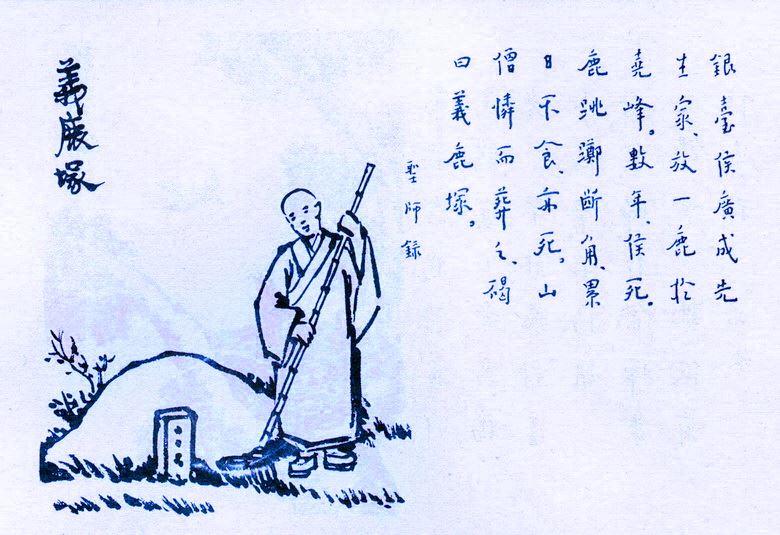 銀臺侯廣成先
生家、放一鹿於
堯峰。數年、侯死。
鹿跳躑斷角、累
日不食、亦死。山
僧憐而葬之、碣
曰義鹿塚。
聖師錄
義鹿塚